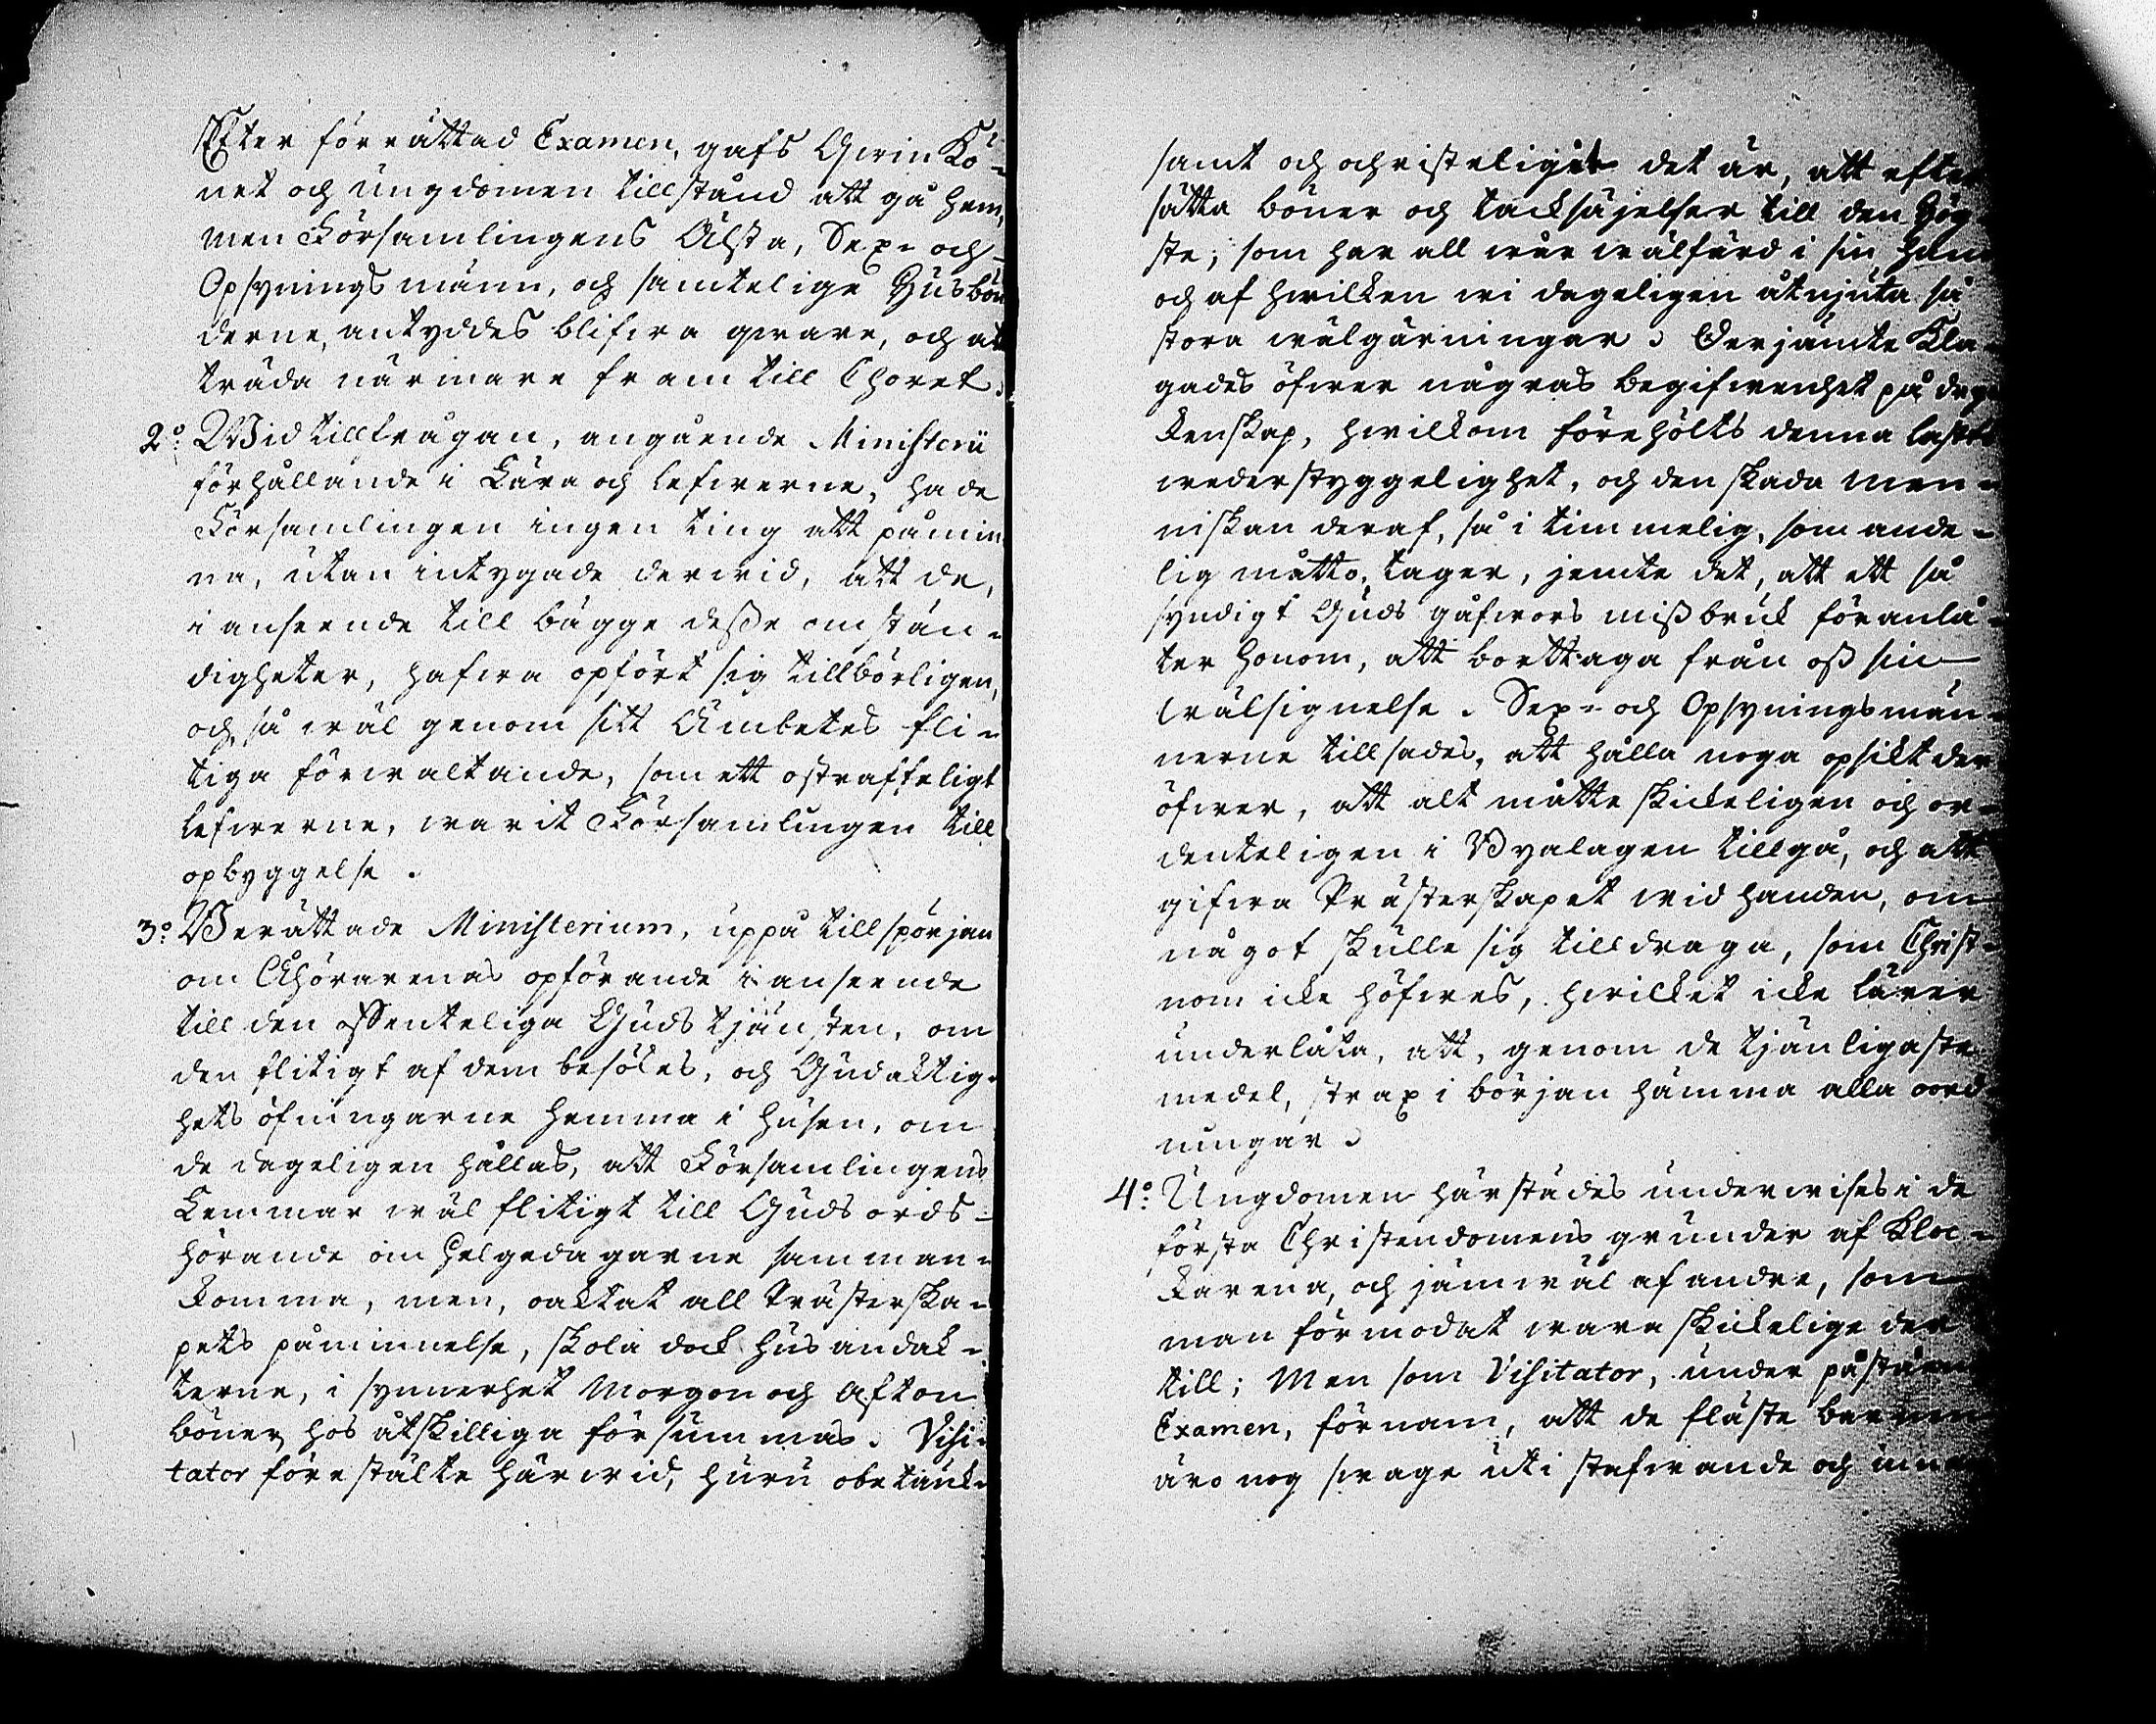 Efter förrättad Examen, gafs Qwin Kö-
net och Ungdomen tillstånd att gå hem,
men Församlingens Älsta, Sex- och
Opsyningsmänn, och samtelige Husbön
derne, antyddes blifwa qware, och att
träda närmare fram till Choret.
2º: Wid tillfrågan, angående Ministerii
förhållande i Lära och lefwerne, hade
Församlingen ingen ting att påmin
na, utan intygade derwid, att de,
i anseende till bägge deße omstän-
digheter, hafwa opfört sig tillbörligen,
och så wäl genom sitt Ämbetes fli-
tiga förwaltande, som ett ostraffeligt
lefwerne, warit Församlingen till
opbyggelse.
3º: Berättade Ministerium, uppå tillspörjan
om Åhörarenas opförande i anseende
till den offenteliga Gudstjänsten, om
den flitigt af dem besökes, och Gudaktig-
hets öfningarne hemma i husen, om
de dageligen hållas, att Församlingens
Lemmar wäl flitigt till Guds ords-
hörande om helgedagarne samman-
komma, men, oaktat all Prästerska-
pets påminnelse, skola dock husandak-
terne, i synnerhet Morgon och Afton
böner, hos åtskilliga försummas. Visi-
tator förestälte härwid, huru obetänk-
samt och ochristeligit det är, att efter
sätta böner och tacksäjelser till den Hög-
ste, som har all wår wälfärd i sin hand
och af hwilken wi dageligen åtnjuta så
stora wälgärningar. Derjämte Kla-
gades öfwer någras begifwenhet på dryc
kenskap, hwilkom föreholts denna lastens
wederstyggelighet, och den skada men-
niskan deraf, så i timmelig, som ande-
lig måtto, tager, jemte det, att ett så
syndigt Guds gåfwors mißbruk föranlå-
ter honom, att borttaga från oß sin
wälsignelse. Sex- och Opsyningsmän-
nerne tillsades, att hålla noga opsikt der
öfwer, att alt måtte skickeligen och or-
denteligen i Byalagen tillgå, och att
gifwa Prästerskapet wid handen, om
något skulle sig tilldraga, som Christ-
nom icke höfwes, hwilket icke lärer
underlåta, att, genom de tjänligaste
medel, strax i början hämma alla oord-
ningar.
4º: Ungdomen härstädes underwises i de
första Christendomens grunder af Kloc-
karena, och jämwäl af andre, som
man förmodat wara skickelige der
till; Men som Visitator, under påstående
Examen, förnam, att de fläste barnen
äro nog swage uti stafwande och innan